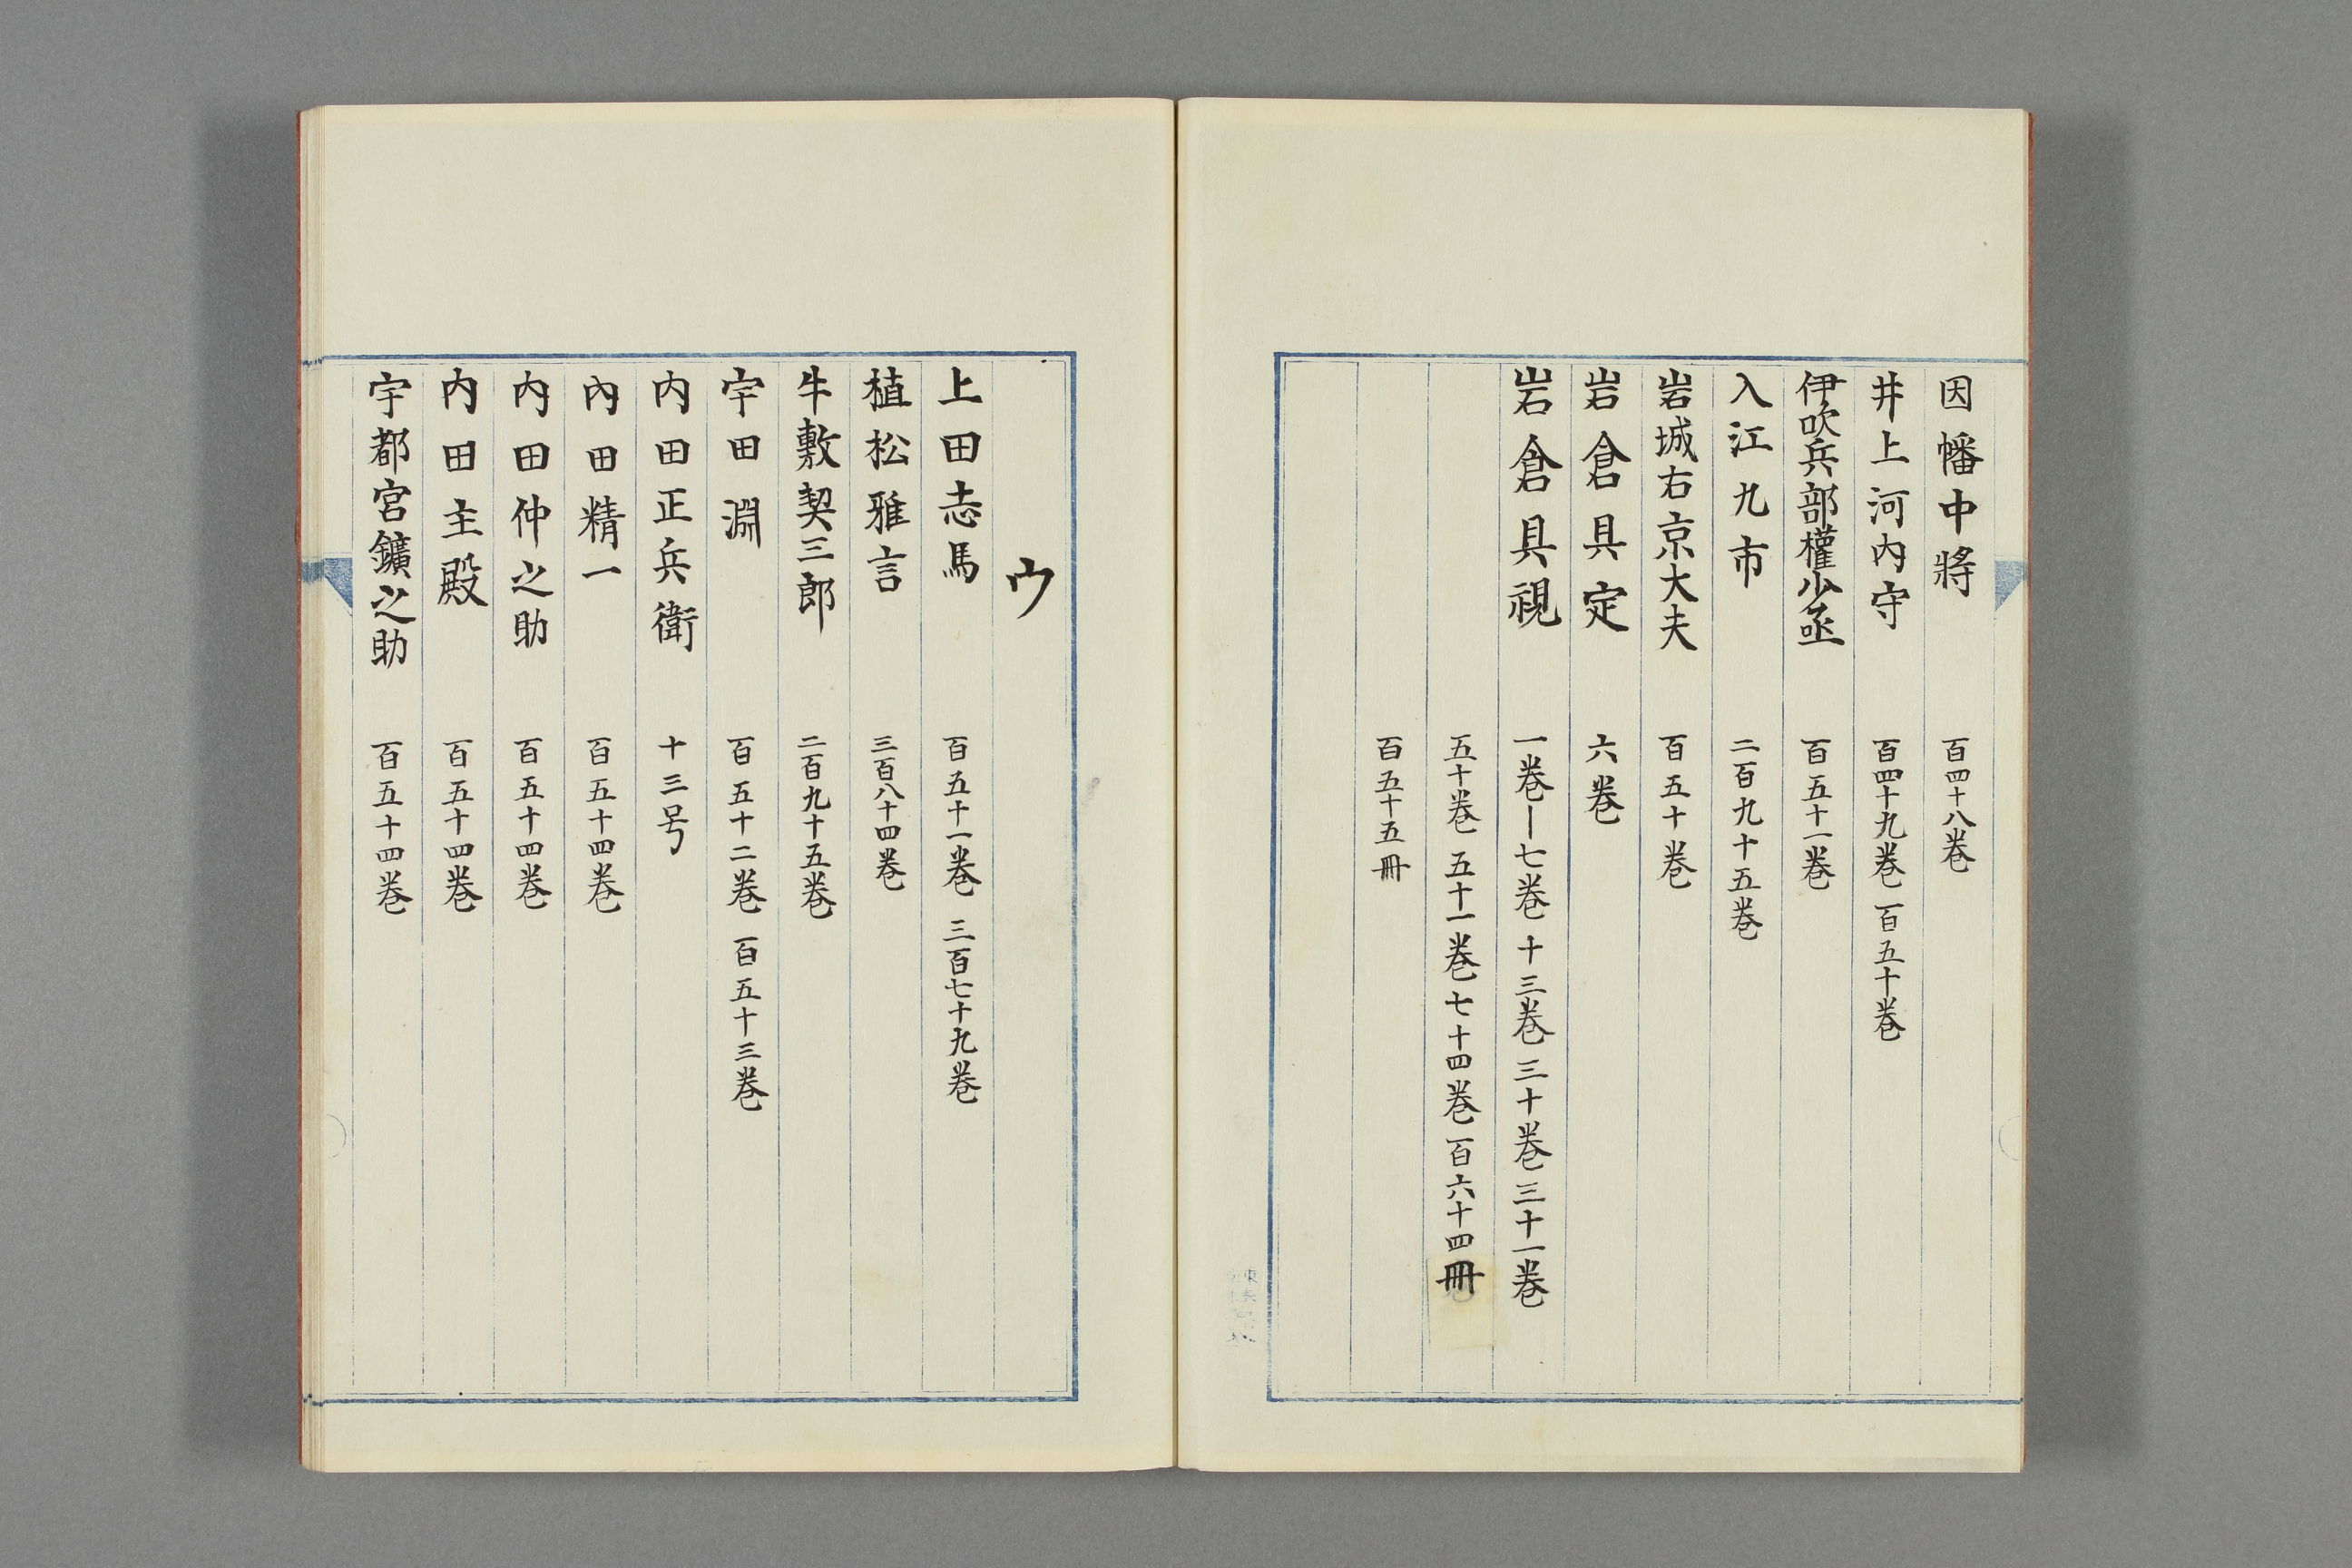 因幡中將 百四十八巻
井上河内守 百四十九巻 百五十巻
伊吹兵部權少丞 百五十一巻
入江九市 二百九十五巻
岩城右京大夫 百五十巻
岩倉具定 六巻
岩倉具視 一巻ー七巻 十三巻 三十巻 三十一巻
五十巻 五十一巻 七十四巻 百六十四冊
百五十五冊
ウ
上田志馬 百五十一巻 三百七十九巻
植松雅言 三百八十四巻
牛敷契三郎 二百九十五巻
宇田淵 百五十二巻 百五十三巻
内田正兵衛 十三号
内田精一 百五十四巻
内田仲之助 百五十四巻
内田主殿 百五十四巻
宇都宮鑛之助 百五十四巻